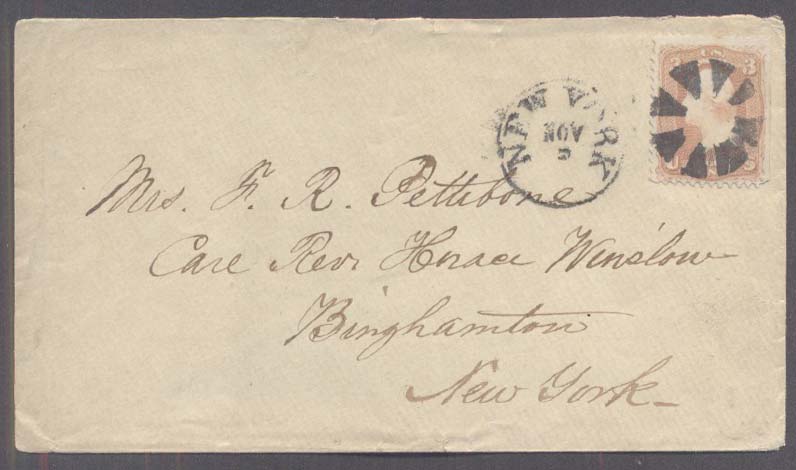 3 U.S. 3
NEW YORK
NOV
5
Mrs. F. R. Pettibone
Care Rev. Horace Winslow
Binghamton
New York